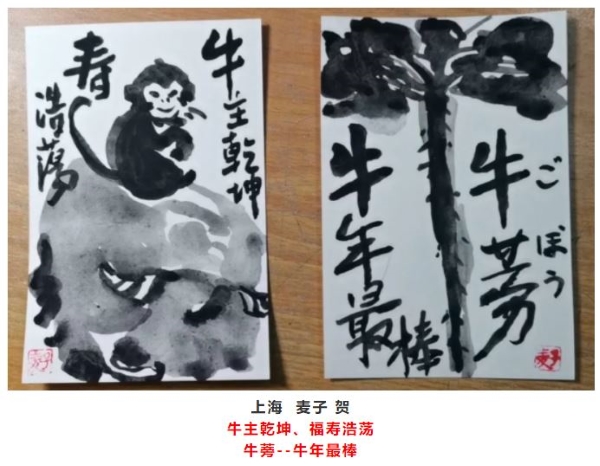 牛主乾坤
寿
浩荡
牛蒡
ごぼう
牛年最棒
麦子
上海 麦子 贺
牛主乾坤、福寿浩荡
牛蒡--牛年最棒